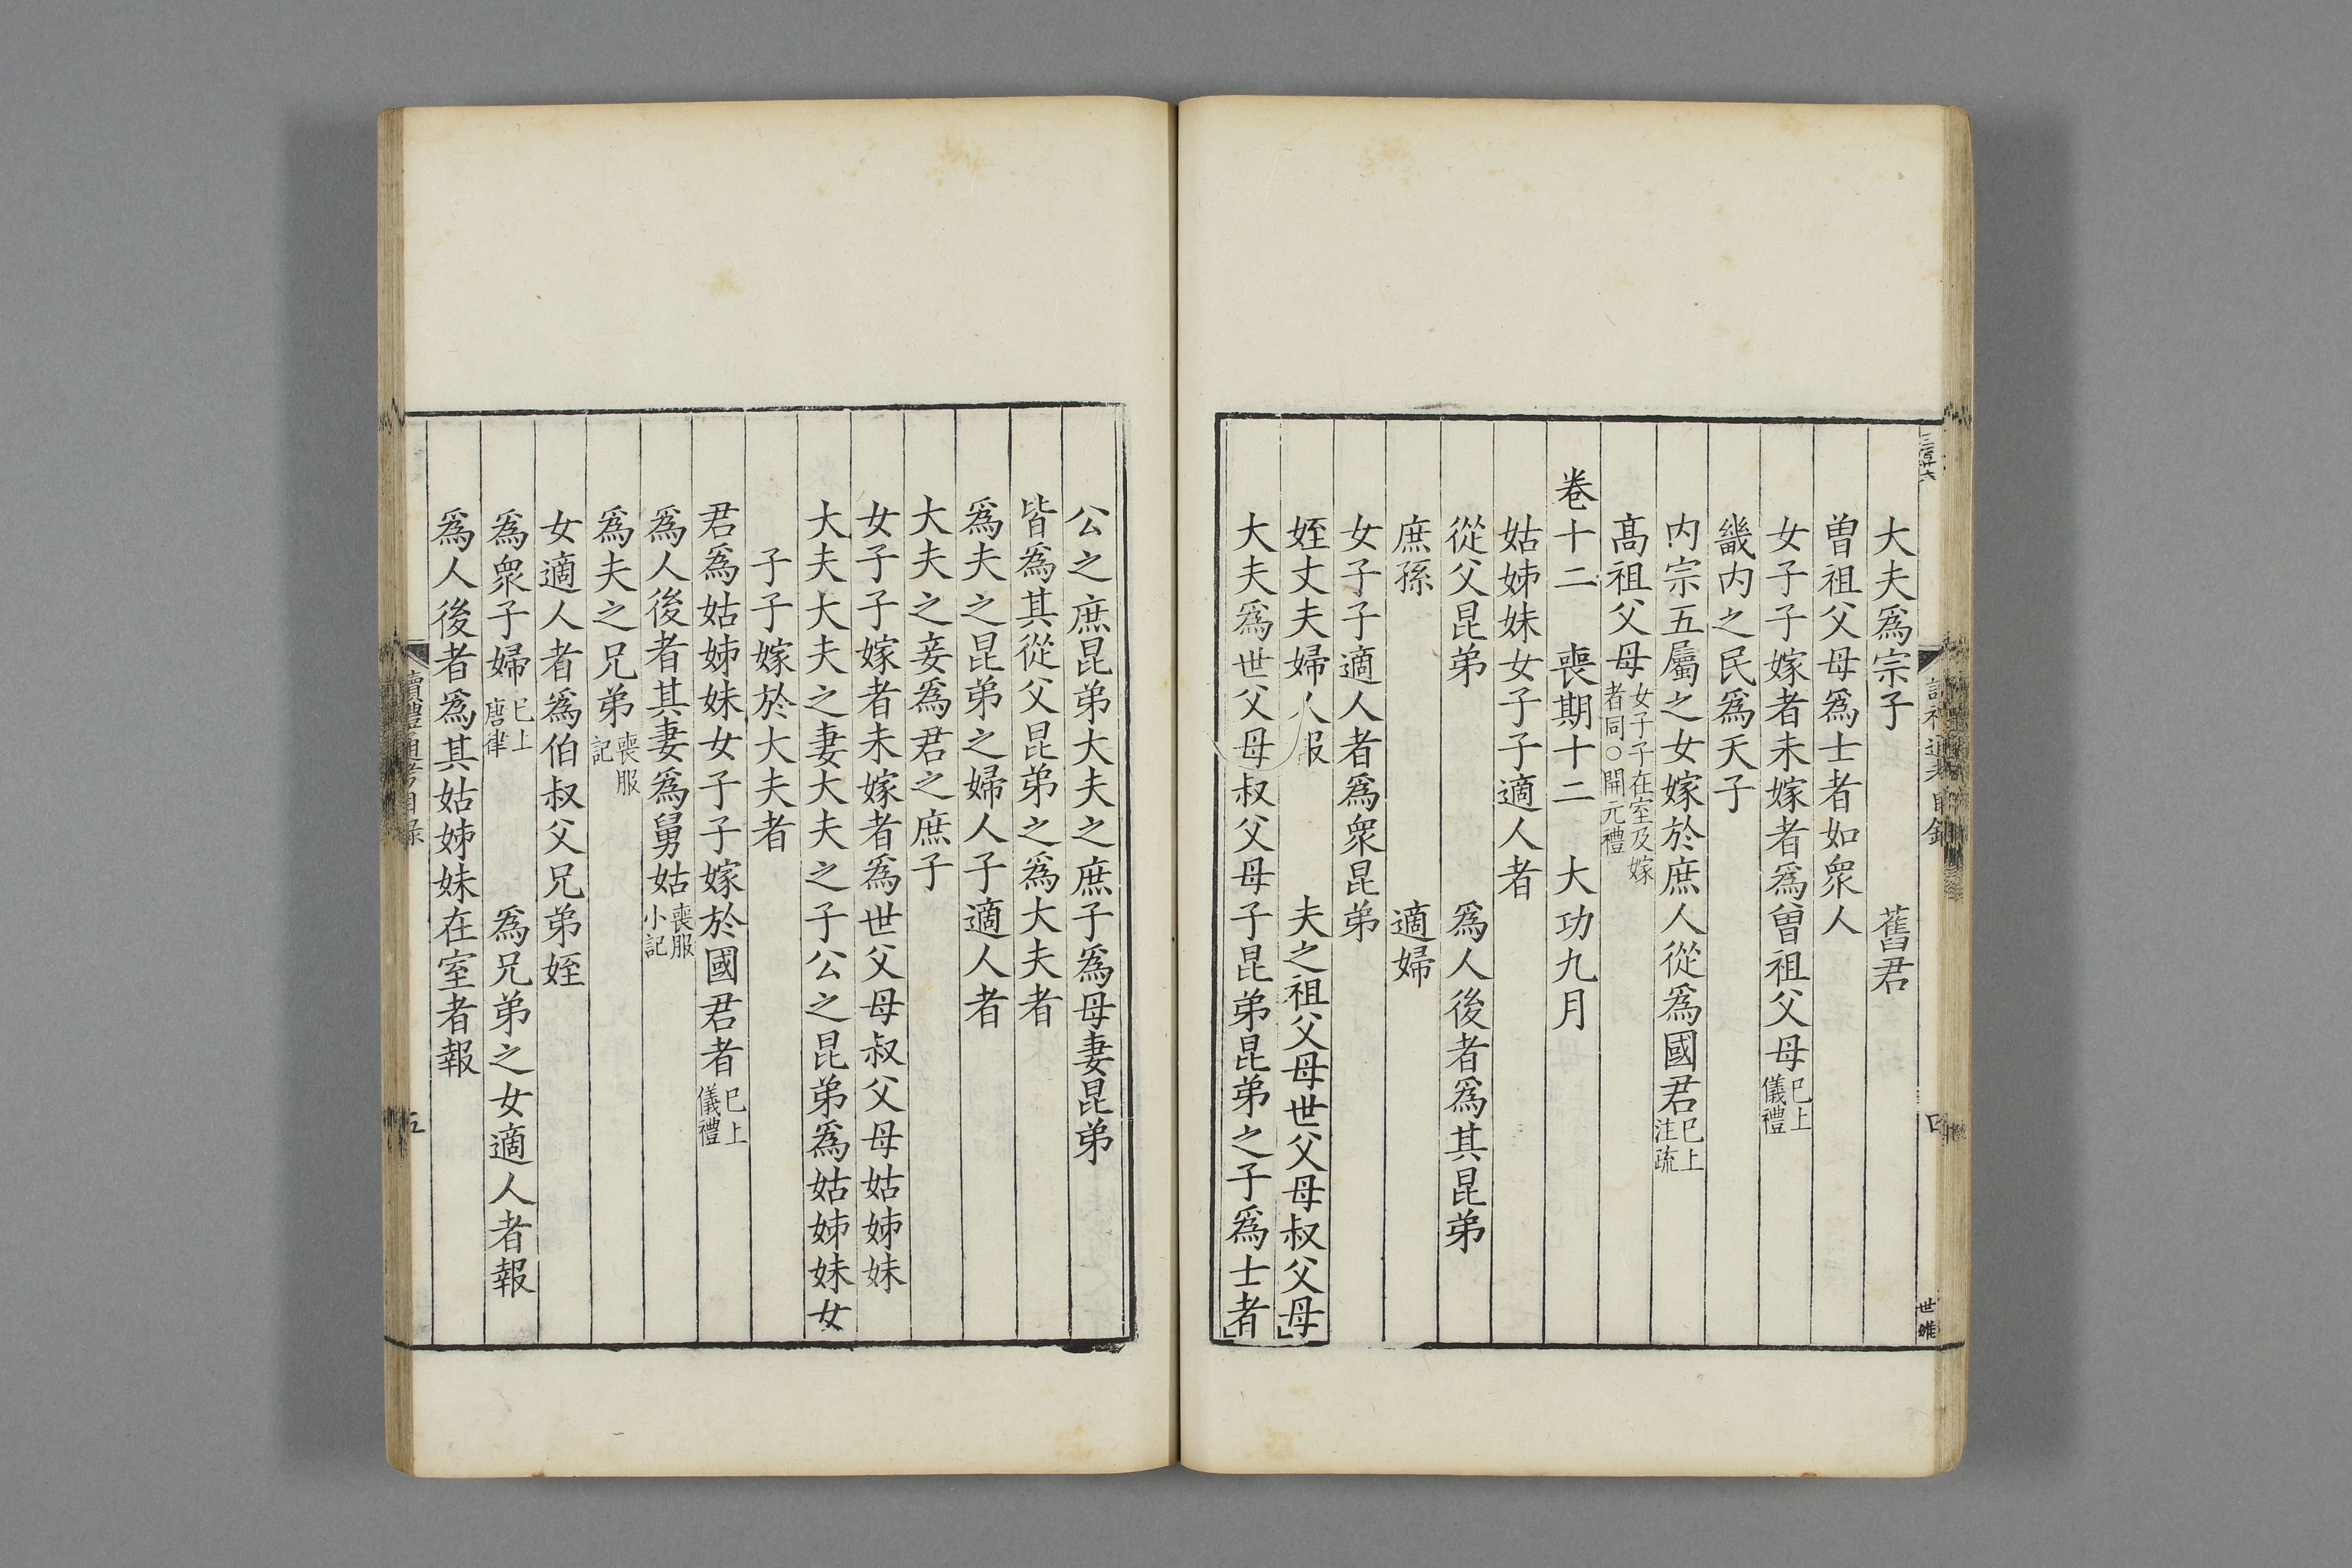 大夫爲宗子　舊君
曽祖父母爲士者如衆人
女子子嫁者未嫁者爲曽祖父母巳上儀禮
畿内之民爲天子
内宗五屬之女嫁於庶人從爲國君巳上注疏
髙祖父母女子子在室及嫁者同○開元禮
卷十二　喪期十二　大功九月
姑姊妹女子子適人者
從父昆弟　爲人後者爲其昆弟
庶孫　適婦
女子子適人者爲衆昆弟
姪丈夫婦人報　夫之祖父母世父母叔父母
大夫爲世父母叔父母子昆弟昆弟之子爲士者
四
世雄
公之庶昆弟大夫之庶子爲母妻昆弟
皆爲其從父昆弟之爲大夫者
爲夫之昆弟之婦人子適人者
大夫之妾爲君之庶子
女子子嫁者未嫁者爲世父母叔父母姑姊妹
大夫大夫之妻大夫之子公之昆弟爲姑姊妹女
子子嫁於大夫者
君爲姑姊妹女子子嫁於國君者巳上儀禮
爲人後者其妻爲舅姑喪服小記
爲夫之兄弟喪服記
女適人者爲伯叔父兄弟姪
爲衆子婦巳上唐律　爲兄弟之女適人者報
爲人後者爲其姑姊妹在室者報
讀禮通考目録
五